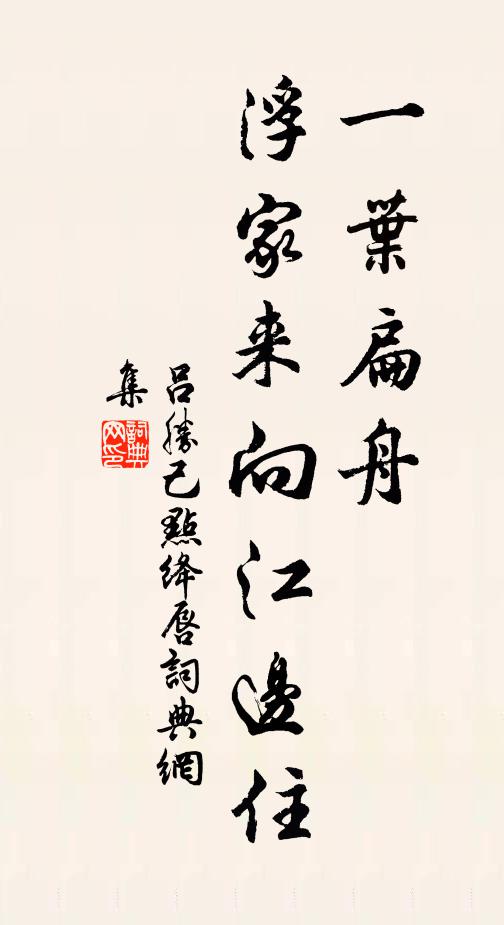 一葉扁舟
浮家来向江邊住
吕勝己點绛唇詞典網
集
詞典
网印